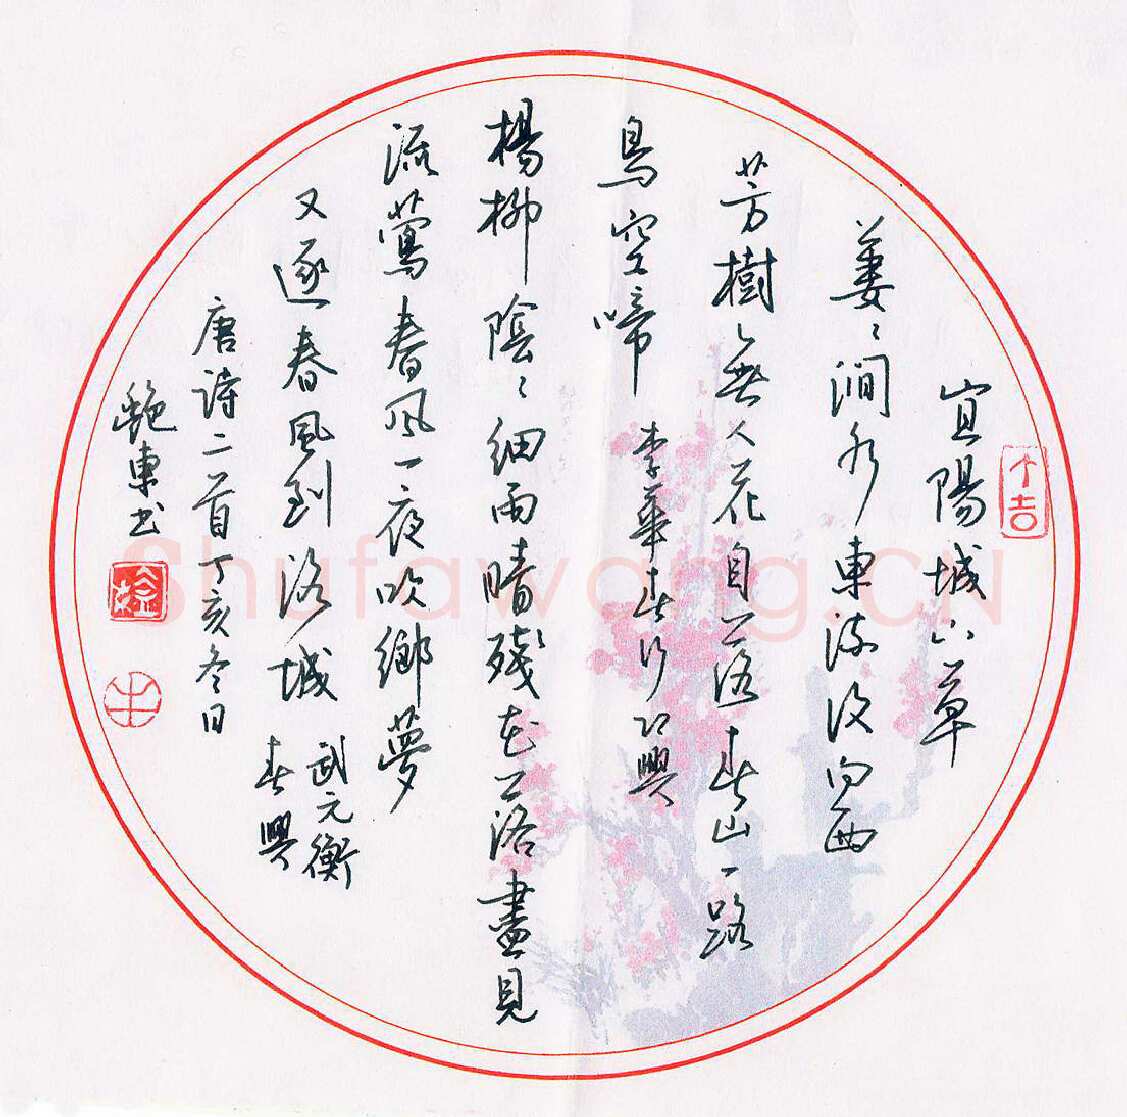 宜陽城下草
萋〻澗水東流復向西
芳樹無人花自落春山一路
鳥空啼 李華春行即興
楊柳陰〻細雨晴殘花落盡見
流鶯春風一夜吹鄉夢
又逐春風到洛城 武元衡
春興
唐詩二首丁亥冬日
東書
Shufawang.CN